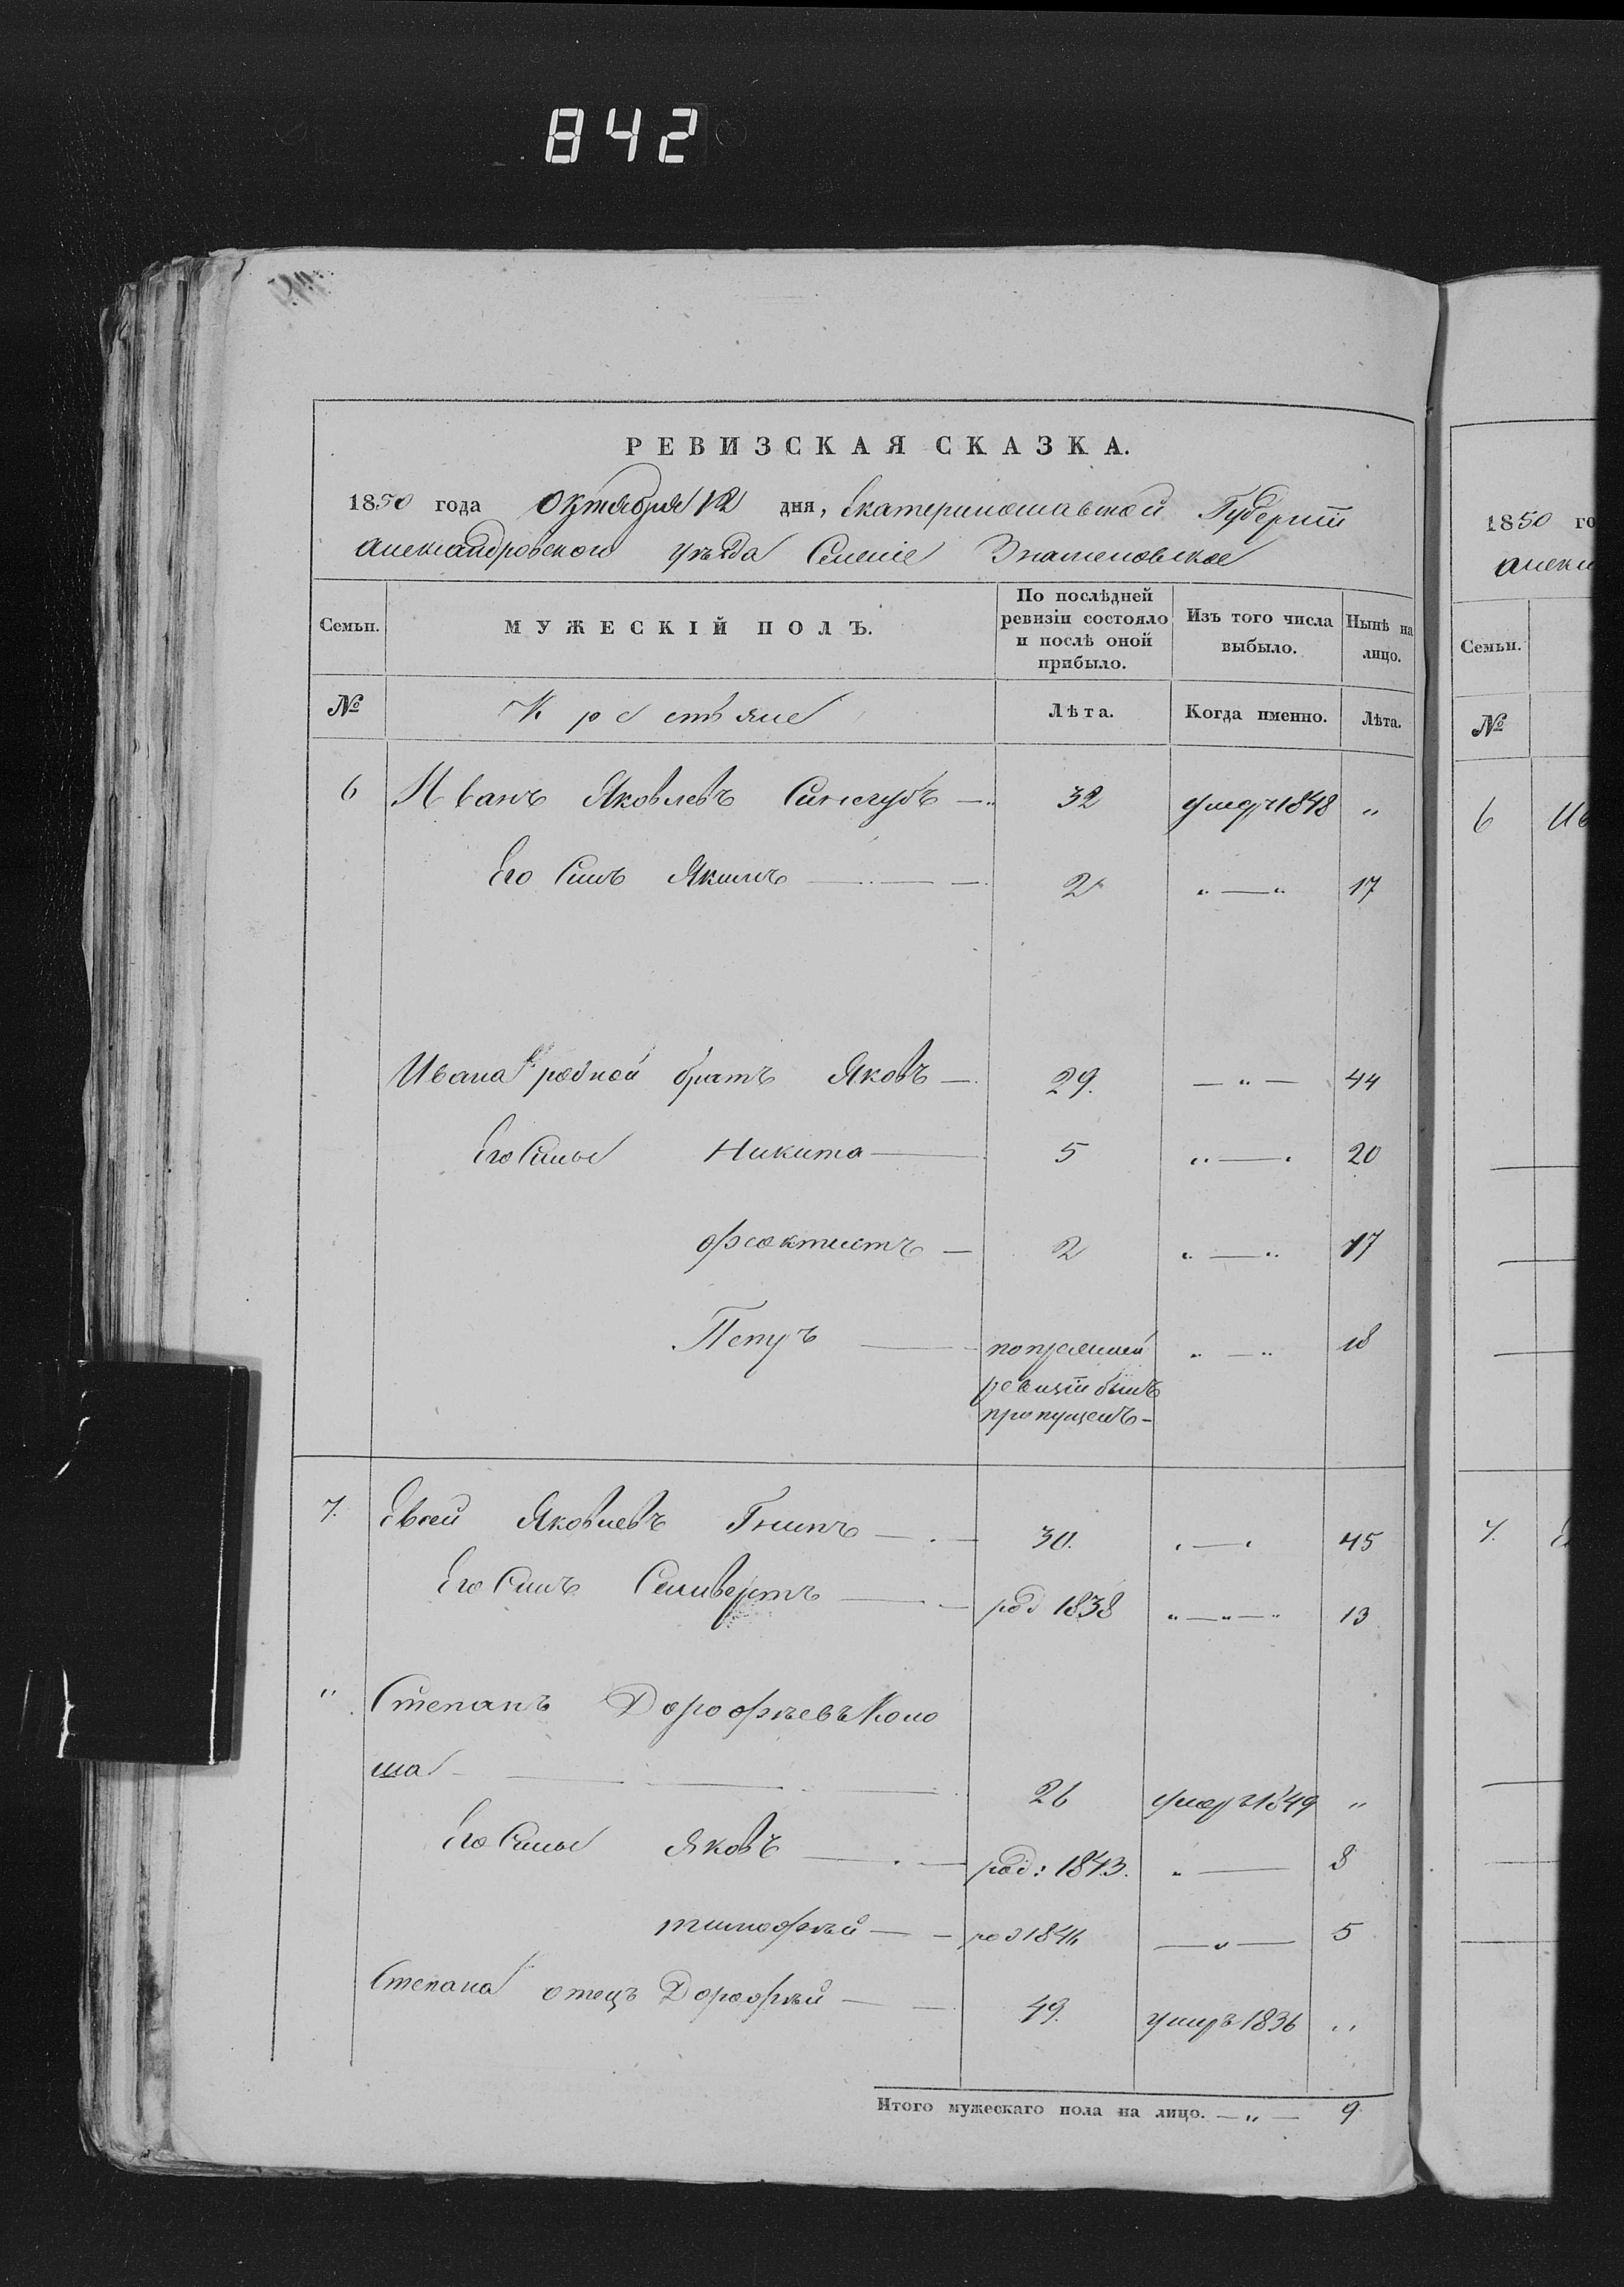 842
РЕВИЗСКАЯ СКАЗКА.
1850 года Октября 12 дня, Екатеринославской Губерніи
Александровскаго уѣзда Селеніе Знаменовское
Семьи. МУЖЕСКІЙ ПОЛЪ. По послѣдней ревизіи состояло и послѣ оной прибыло. Изъ того числа выбыло. Нынѣ на лицо.
№ Крестьяне Лѣта. Когда именно. Лѣта.
6 Иванъ Яковлевъ Синегубъ — 32 умеръ 1848 „
Его Сынъ Якимъ — 2 „ — „ 17
Ивана родной братъ Яковъ — 29. — „ — 44
Его Сыны Никита — 5 „ — „ 20
Феоктистъ — 2 „ — „ 17
Петръ — по прежней „ — „ 18
ревизіи былъ
пропущенъ —
7. Евсей Яковлевъ Гнипъ — 30. „ — „ 45
Его Сынъ Селиверстъ — род 1838 „ — „ — „ 13
„ Степанъ Дорофѣевъ Коло
ша — 26 умеръ 1849 „
Его Сыны Яковъ — род: 1843. „ — 8
тимофѣй — род 1846 — „ — 5
Степана отецъ Дорофѣй — 49. умеръ 1836 „
Итого мужескаго пола на лицо. — „ — 9
1850 го
Семьи.
№
6 Ив
7.